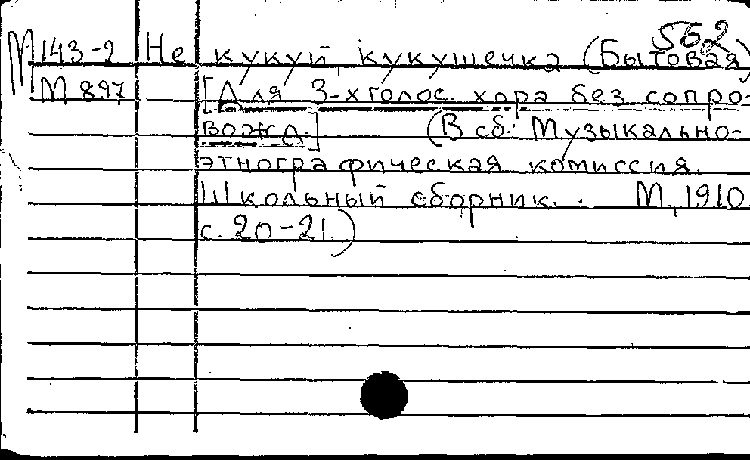 562
М143-2 Не кукуй, кукушечка (Бытовая)
М 897 [Для 3-хголос. хора без сопро-
вожд.] (В сб.: Музыкально-
этнографическая комиссия.
Школьный сборник. М, 1910
с. 20-21.)